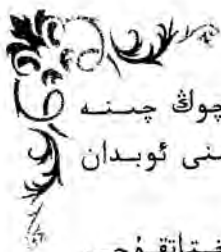 چوڭ چىنە
ىنى ئوبدان